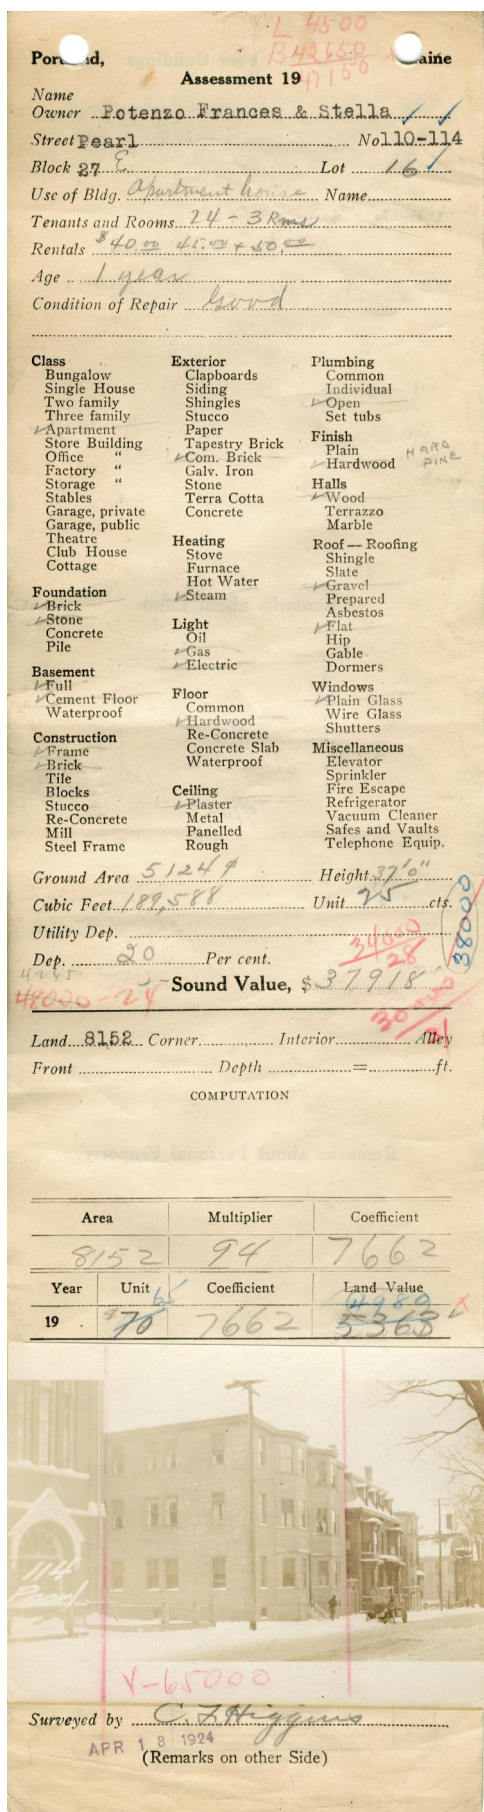 L 4500
B 42650
47150 x
Portland, Maine
Assessment 19
Name
Owner Potenzo Frances & Stella ✓ ✓
Street Pearl No 110-114
Block 27 E Lot 16 ✓
Use of Bldg. Apartment house Name
Tenants and Rooms 24 - 3 Rms
Rentals $40.00 45.00 + 50.00
Age 1 year
Condition of Repair Good
Class
Bungalow
Single House
Two family
Three family
✓Apartment
Store Building
Office "
Factory "
Storage "
Stables
Garage, private
Garage, public
Theatre
Club House
Cottage
Foundation
✓Brick
✓Stone
Concrete
Pile
Basement
✓Full
✓Cement Floor
Waterproof
Construction
✓Frame
✓Brick
Tile
Blocks
Stucco
Re-Concrete
Mill
Steel Frame
Exterior
Clapboards
Siding
Shingles
Stucco
Paper
Tapestry Brick
✓Com. Brick
Galv. Iron
Stone
Terra Cotta
Concrete
Heating
Stove
Furnace
Hot Water
✓Steam
Light
Oil
✓Gas
✓Electric
Floor
Common
✓Hardwood
Re-Concrete
Concrete Slab
Waterproof
Ceiling
✓Plaster
Metal
Panelled
Rough
Plumbing
Common
Individual
✓Open
Set tubs
Finish
Plain
✓Hardwood
HARD
PINE
Halls
✓Wood
Terrazzo
Marble
Roof — Roofing
Shingle
Slate
✓Gravel
Prepared
Asbestos
✓Flat
Hip
Gable
Dormers
Windows
✓Plain Glass
Wire Glass
Shutters
Miscellaneous
Elevator
Sprinkler
Fire Escape
Refrigerator
Vacuum Cleaner
Safes and Vaults
Telephone Equip.
Ground Area 5124 Height 37'0"
Cubic Feet 189,588 Unit 25 cts.
38000
Utility Dep.
34000
28
Dep. 20 Per cent.
48000-24 Sound Value, $ 37918
Land 8152 Corner Interior Alley
Front Depth = ft.
COMPUTATION
Area Multiplier Coefficient
8152 94 7662
Year Unit Coefficient Land Value
65 4980 x
19 $70 7662 5363
114
Pearl
V-65000
Surveyed by C. F. Higgins
APR 18 1924
(Remarks on other Side)